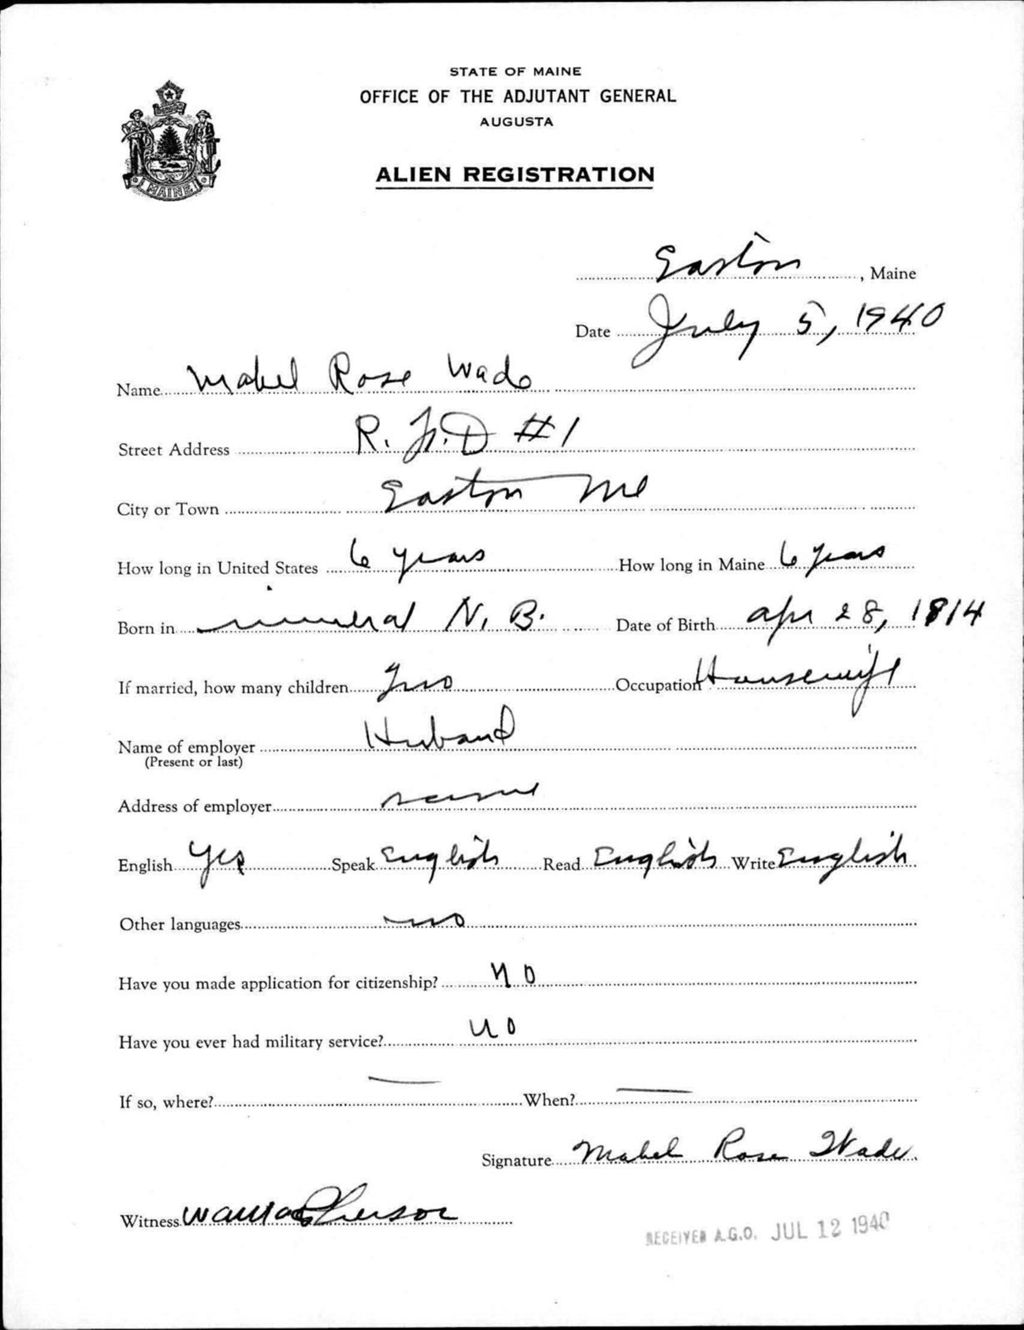 STATE OF MAINE
OFFICE OF THE ADJUTANT GENERAL
AUGUSTA
ALIEN REGISTRATION
MAINE
Easton, Maine
Date July 5, 1940
Name Mabel Rose Wade
Street Address R.F.D #1
City or Town Easton Me
How long in United States 6 years How long in Maine 6 years
Born in mineral N. B. Date of Birth apr 28, 1914
If married, how many children Two Occupation Housewife
Name of employer Husband
(Present or last)
Address of employer same
English Yes Speak English Read English Write English
Other languages no
Have you made application for citizenship? no
Have you ever had military service? no
If so, where? — When? —
Signature Mabel Rose Wade.
Witness
RECEIVED A.G.O. JUL 12 1940